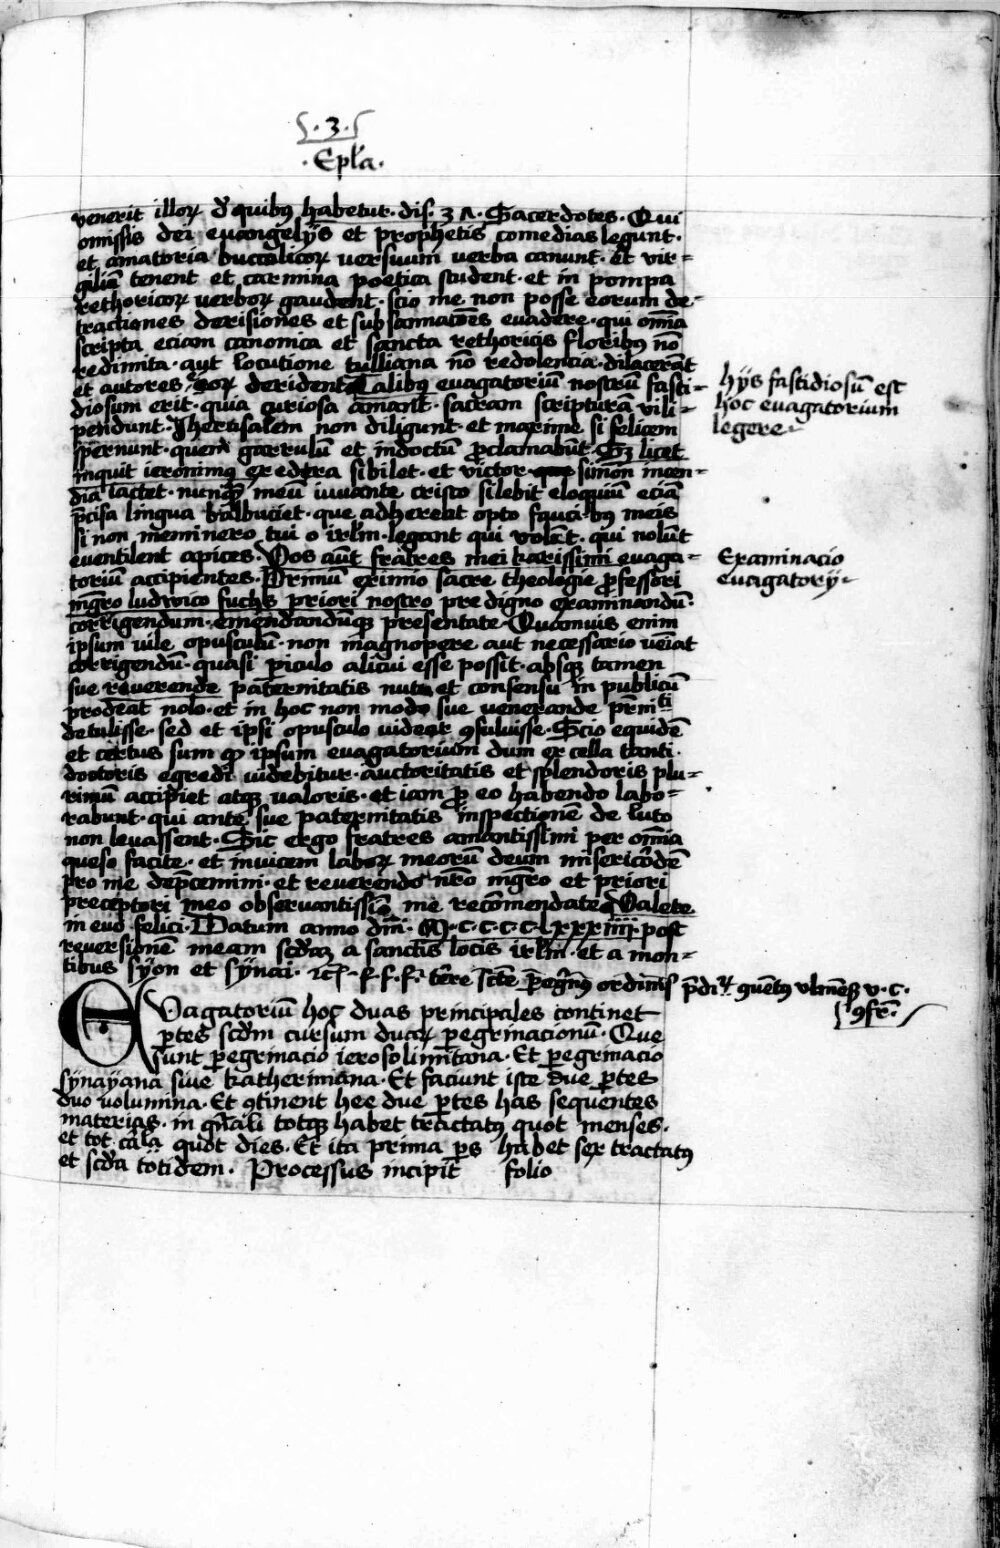 · 3 ·
· Epl̃a ·
venerit illoꝝ de quibus habetur · dis. 3 ʌ · Sacerdotes · Qui
omissis dei evangelijs et prophetis comedias legunt ·
et amatoria buccolicoꝝ versuum verba canunt · et vir=
giliū tenent et carmina poetica student · et in pompa
rethoricoꝝ verboꝝ gaudent · scio me non posse eorum de=
tractiones derisiones et subsannatōes evadere · qui om̄ia
scripta eciam canonica et sancta rethoricis floribus nō
redimita · aut locutione tulliana nō redolencia · dilacerāt
et autores eoꝝ derident Talibus evagatoriū nostrū fasti=
diosum erit · quia curiosa amant · sacram scripturā vili=
pendunt · Jherusalem non diligunt · et maxime si felicem
spernunt · quem garrulum et indoctū proclamabūt · Sꝫ licet
inquit ieronimus ex edera sibilet · et victor simon incen=
dia iactet · nunqᷓ meū iuvante cristo silebit eloquiū eciā
p̄cisa lingua balbuciet · que adhereat opto faucibus meis
si non meminero tui o irl̄m · legant qui volūt · qui nolūt
eventilent apices · Vos aūt fratres mei karissimi evaga=
torium accipientes · Primū eximio sacre theologie ꝓfessori
mḡro ludwico fuchs priori nostro predigno examinandū ·
corrigendum · emendandumqꝫ presentate · Quamvis enim
ipsum vile opusculū · non magnopere aut necessario veniat
corrigendū · quasi ꝑiculo alicui esse possit · absqꝫ tamen
sue reverende paternitatis nutu et consensu in publicū
prodeat nolo · et in hoc non modo sue venerande pr̄niti
detulisse · sed et ipsi opusculo videor ꝯsuluisse · Scio equidē
et certus sum ꝙ ipsum evagatorium dum ex cella tanti ·
doctoris egredi videbitur · auctoritatis et splendoris plu=
rimū accipiet atqꝫ valoris · et iam ꝓ eo habendo labo=
rabunt · qui ante sue paternitatis inspectionē de luto
non levassent · Sic ergo fratres amantissimi per om̄ia
queso facite · et invicem laboꝝ meorū deum misericordē
pro me dep̄cemini · et reverendo nr̄o mḡro et priori
preceptori meo observantissīo me recōmendate Valete
in evo felici · Datum anno dn̄i · M · c · c · c · c · lxxxiiij · post
reversionē meam scd̄aꝫ a sanctis locis irl̄m · et a mon=
tibus syon et synai · f · f · f · t̄re sc̄te ꝑegr̄nus ordinis p̄di ꝯuetus ulmēs v · c ·
ꝯfr̄ ·
hijs fastidiosū est
hoc evagatorium
legere
Examinacio
evagatorij
EVagatoriū hoc duas principales continet
ꝑtes scd̄m cursum duaꝝ ꝑegrinacionū · Que
sunt ꝑegrinacio ierosolimitana · Et ꝑegrinacio
synayana sive katheriniana · Et faciunt iste due ꝑtes
duo volumina · Et ꝯtinent hee due ꝑtes has sequentes
materias · in gn̄ali totqꝫ habet tractatus quot menses ·
et tot cap̄la quot dies · Et ita prima ꝑs habet sex tractatus
et scd̄a totidem · Processus incipit folio